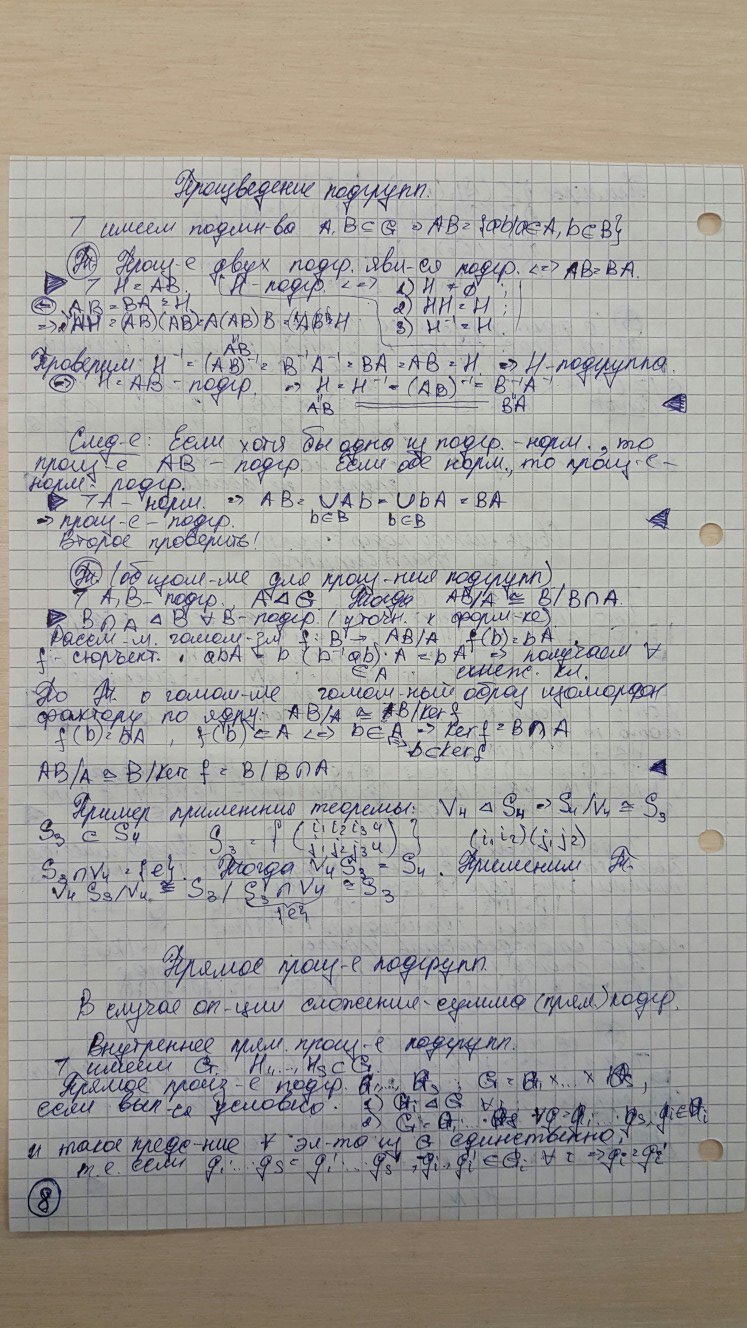 Произведение подгрупп.
7 имеем подмн-ва A, B ⊂ G ⇒ AB = {ab | a∈A, b∈B}
Т. Произ-е двух подгр. явл-ся подгр. <=> AB = BA.
▶ 7 H = AB. H - подгр. <=> 1) H ≠ ∅;
<= AB = BA = H 2) HH = H;
=> HH = (AB)(AB) = A(AB)B = AB = H 3) H⁻¹ = H.
Проверим H⁻¹ = (AB)⁻¹ = B⁻¹A⁻¹ = BA = AB = H. ⇒ H - подгруппа.
=> H = AB - подгр. ⇒ H = H⁻¹ = (AB)⁻¹ = B⁻¹A⁻¹
AB BA ◀
След-е: Если хотя бы одна из подгр. - норм., то
произ-е AB - подгр. Если обе норм., то произ-е -
норм. подгр.
▶ 7 A - норм. ⇒ AB = ∪Ab = ∪bA = BA
b∈B b∈B
⇒ произ-е - подгр. ◀
Второе проверить!
Т. (об изом-ме для произ-ния подгрупп)
7 A, B - подгр. A ⊲ G Тогда AB/A ≅ B/B∩A.
▶ B∩A ⊲ B ∀ B - подгр. (уточн. к форм-ке)
Рассм-м. гомом-зм f: B → AB/A f(b) = bA
f - сюръект. abA = b(b⁻¹ab)·A = bA ⇒ получаем ∀
∈A смеж. кл.
По Т. о гомом-ме гомом-ный образ изоморфен
фактору по ядру: AB/A ≅ AB/Ker f
f(b) = bA, f(b) = A <=> b∈A ⇒ Ker f = B∩A
b∈Ker f
AB/A ≅ B/Ker f = B/B∩A ◀
Пример применения теоремы: V₄ ⊲ S₄ ⇒ S₄/V₄ ≅ S₃
S₃ ⊂ S₄ S₃ = {(i₁i₂i₃4 / j₁j₂j₃4)} (i₁i₂)(j₁j₂)
S₃∩V₄ = {e}. Тогда V₄S₃ = S₄. Применим Т.
V₄S₃/V₄ ≅ S₃/S₃∩V₄ ≅ S₃
{e}
Прямое произ-е подгрупп.
В случае оп-ции сложения - сумма (прям.) подгр.
Внутреннее прям. произ-е подгрупп.
7 имеем G. H₁, ..., Hₛ ⊂ G.
Прямое произ-е подгр. G₁, ..., Gₛ : G = G₁ ×...× Gₛ,
если вып-ся условие: 1) Gᵢ ⊲ G ∀i
2) G = G₁...Gₛ ∀g = g₁...gₛ, gᵢ∈Gᵢ
и такое предс-ние ∀ эл-та из G единственно,
т.е. если g₁...gₛ = g₁'...gₛ', gᵢ, gᵢ' ∈ Gᵢ ∀i ⇒ gᵢ = gᵢ'
8